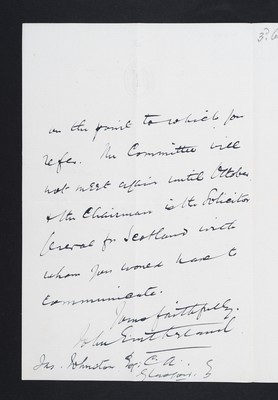 on the point to which you
refer. The Committee will
not meet again until October
& the Chairman is the Solicitor
General for Scotland with
whom you would have to
communicate.
Yours faithfully,
John Sutherland
Jas. Johnston Esq. C.A.
Glasgow.